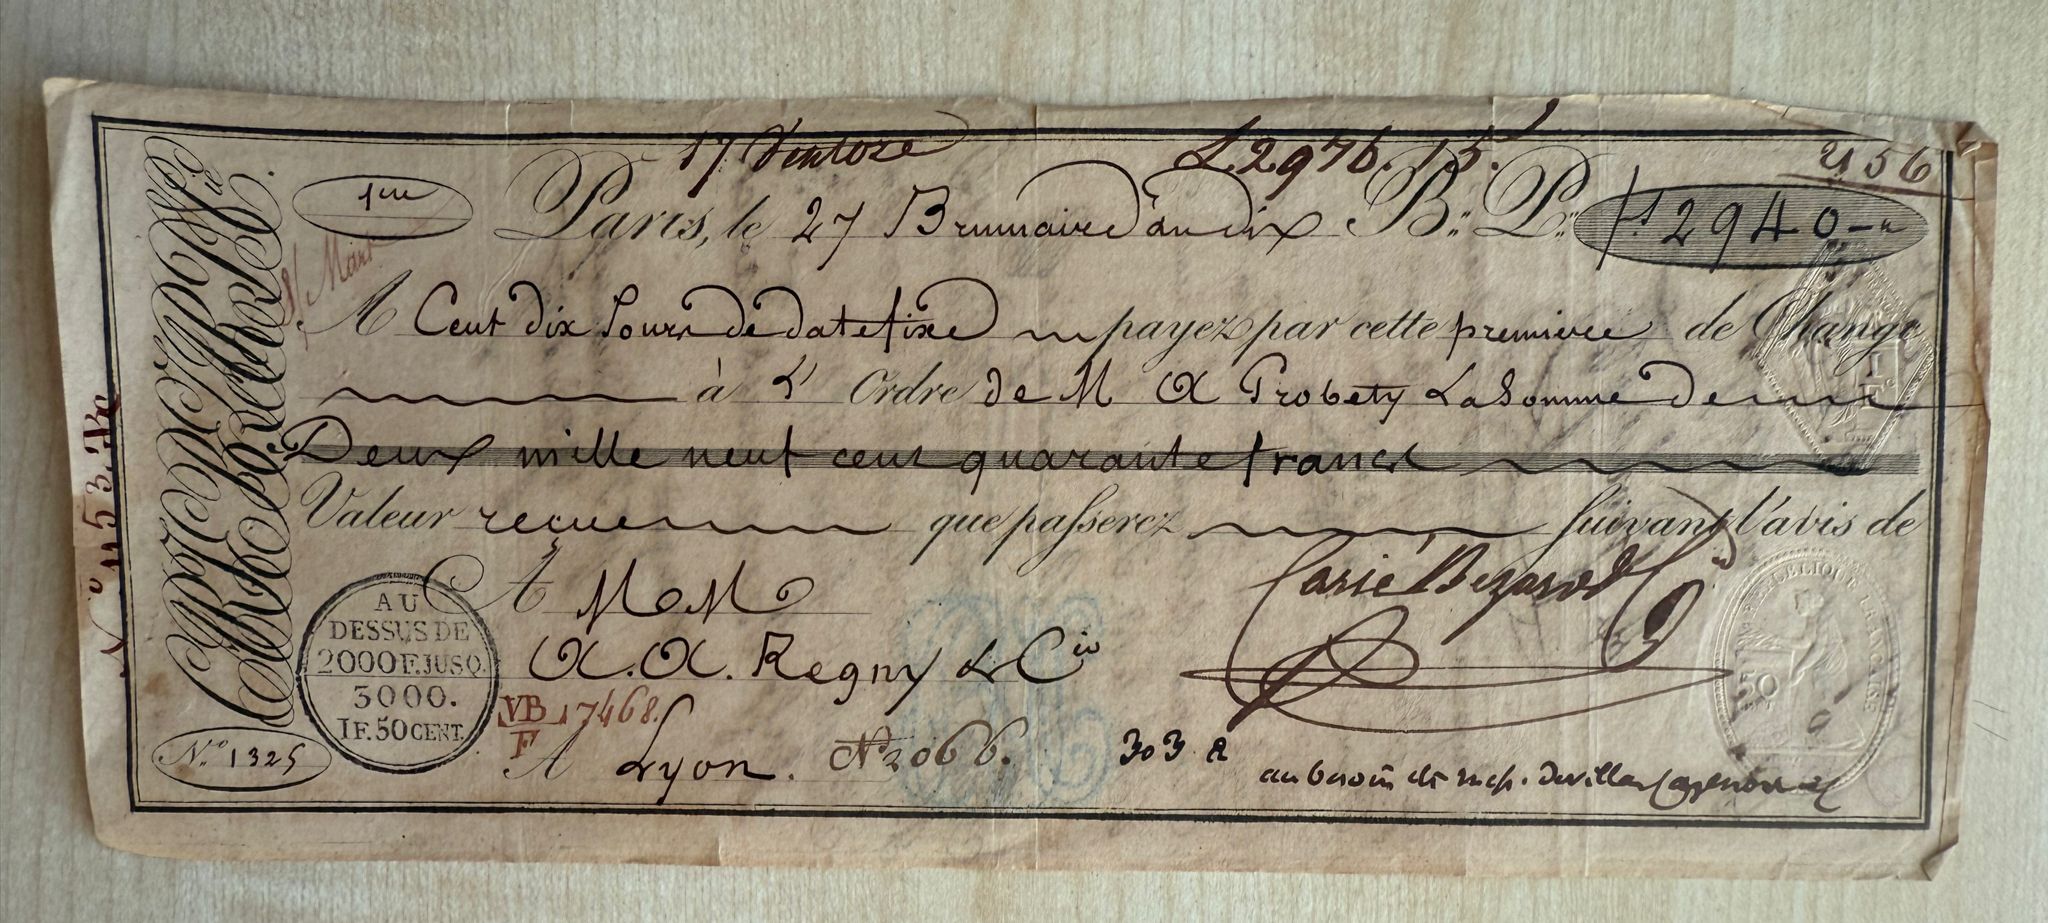 17 Ventoze L 2976. 15.
2156
1ere
Paris, le 27 Brumaire an dix B.. P.. f 2940
A Cent dix Jours de date fixe payez par cette premiere de Change
à L' Ordre de M A Probety La Somme de
Deux mille neuf cent quarante francs
Valeur recue que passerez suivant l'avis de
Carié Bezard
A M M
A. A. Regny & Cie
A Lyon. No 2066. 303
au besoin de
AU
DESSUS DE
2000 F. JUSQ.
3000.
1 F. 50 CENT.
VB 7468.
F
No. 1325
REPUBLIQUE FRANCAISE
50